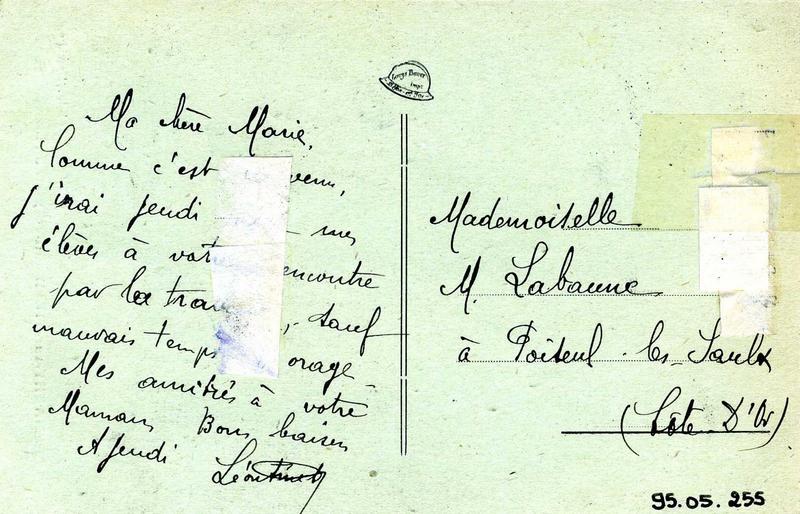 Ma chère Marie,
Comme c'est venu,
j'irai jeudi mes
élèves à vot encontre
par la tra , sauf
mauvais temps orage
Mes amitiés à votre
Maman, Bons baisers
A jeudi Léontine
Mademoiselle
M. Labaune
à Poiseul-les-Saulx
(Côte-D'Or)
95.05.255